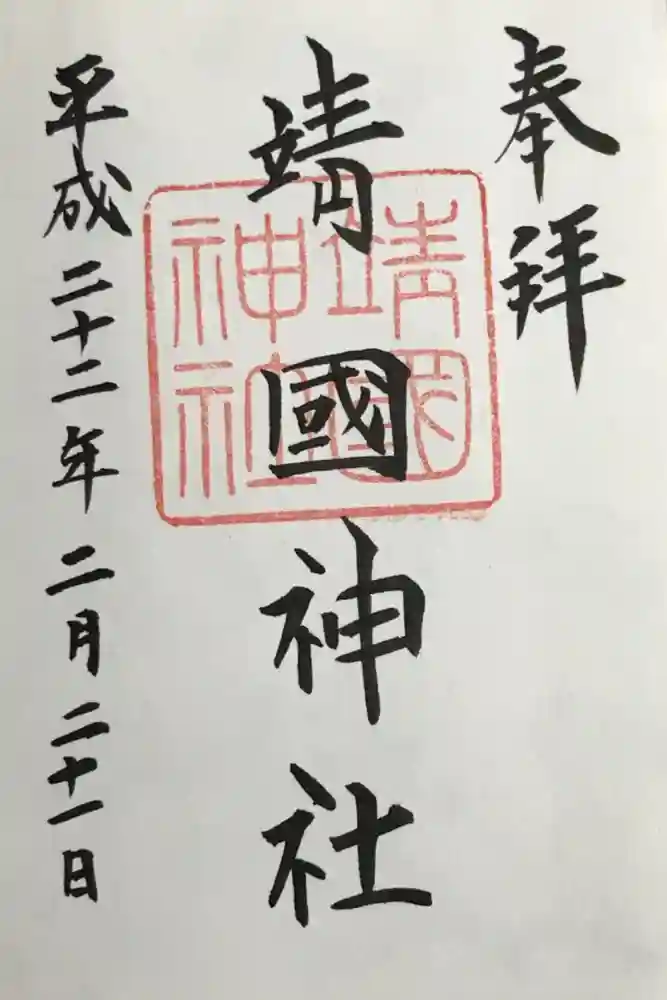 奉拝
靖國神社
靖國
神社
平成二十二年二月二十一日